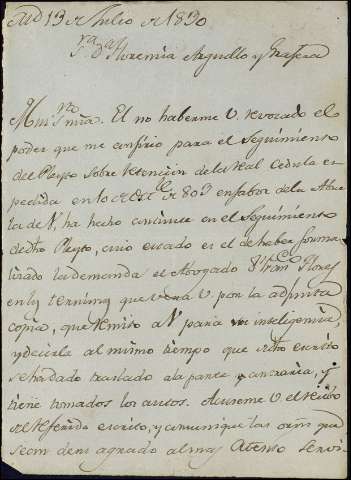 Md 13 de Julio de 1830
Sra Da Florencia Arguello y
Mui Sra mia. El no haberme V revocado el
poder que me confirio para el Seguimiento
del Pleyto sobre retencion de la Real Cedula es
pedida en 10 de de 803 en fabor de la Abue
la de V, ha hecho continue en el Seguimiento
de dho Pleyto, cuio estado es el de haber forma
lizado la demanda el Abogado Dn Franco Flores
en los terminos que verá V. por la adjunta
copia, que remito a V para su inteligencia,
y decirle al mismo tiempo que de dho escrito
se ha dado traslado a la parte contraria, y
tiene tomados los autos. Aviseme V el recibo
del referido escrito, y comunique las orns que
sean de su agrado al mas Atento Servi